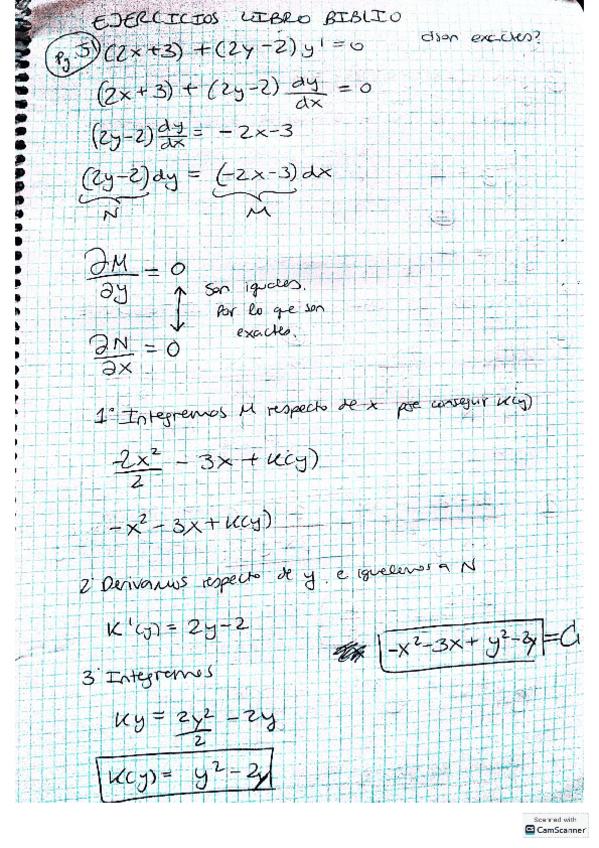 EJERCICIOS LIBRO BIBLIO
Pg. 51 (2x+3) + (2y-2) y' = 0 ¿son exactas?
(2x+3) + (2y-2) dy/dx = 0
(2y-2) dy/dx = -2x-3
(2y-2)dy = (-2x-3)dx
N M
∂M/∂y = 0
Son iguales.
Por lo que son
exactas.
∂N/∂x = 0
1º Integramos M respecto de x para conseguir K(y)
-2x²/2 - 3x + K(y)
-x² - 3x + K(y)
2º Derivamos respecto de y e igualamos a N
K'(y) = 2y-2
-x²-3x+y²-2y = C
3º Integramos
Ky = 2y²/2 - 2y
K(y) = y² - 2y
Scanned with
CS CamScanner